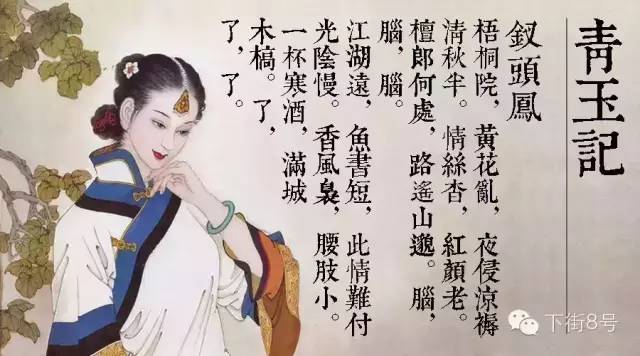 青玉記
釵頭鳳
梧桐院，黃花亂，夜侵涼褥
清秋半。情絲杳，紅顏老。
檀郎何處，路遙山邈。腦，
腦，腦。
江湖遠，魚書短，此情難付
光陰慢。香風裊，腰肢小。
一杯寒酒，滿城
木槁。了，
了，了。
下街8号